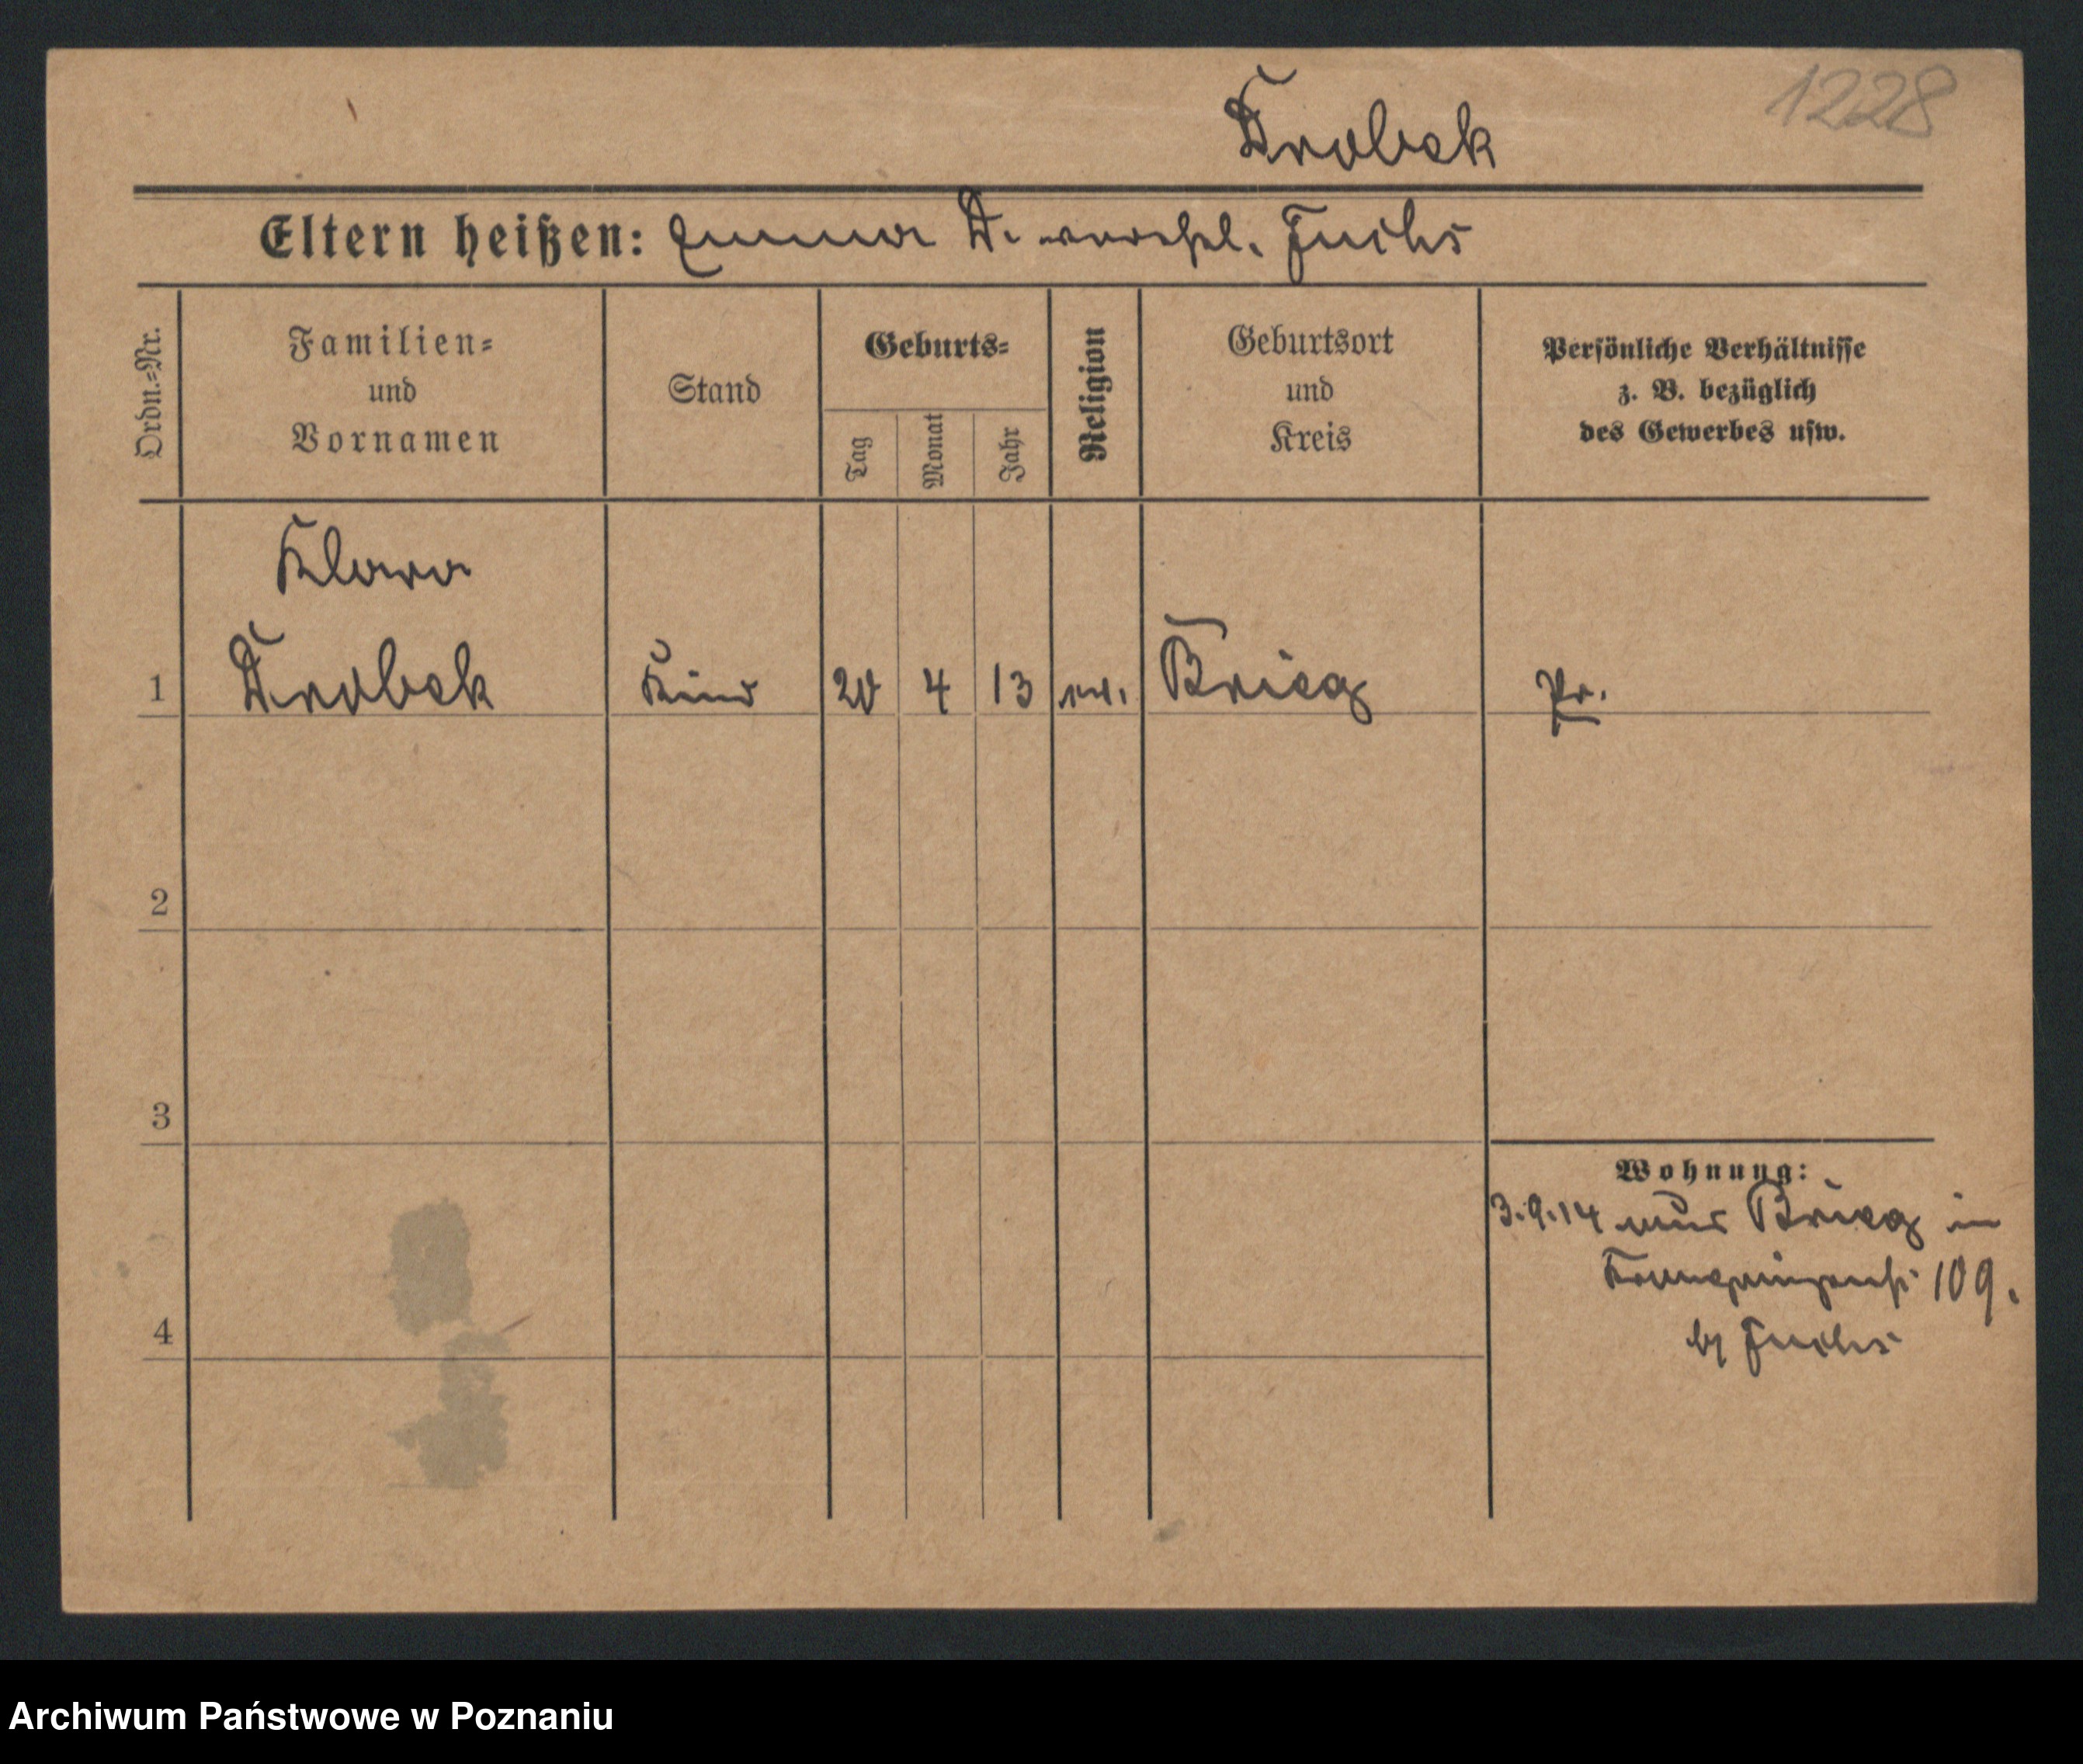 1228
Drobek
Eltern heißen: Emma D. verehel. Fuchs
Ordn.=Nr.
Familien=
und
Vornamen
Stand
Geburts=
Tag
Monat
Jahr
Religion
Geburtsort
und
Kreis
Persönliche Verhältnisse
z. B. bezüglich
des Gewerbes usw.
Klara
1 Drobek Kind 20 4 13 ev. Brieg Pr.
2
3
4
Wohnung:
3.9.14 aus Brieg in
Kronprinzenst. 109.
by Fuchs
Archiwum Państwowe w Poznaniu